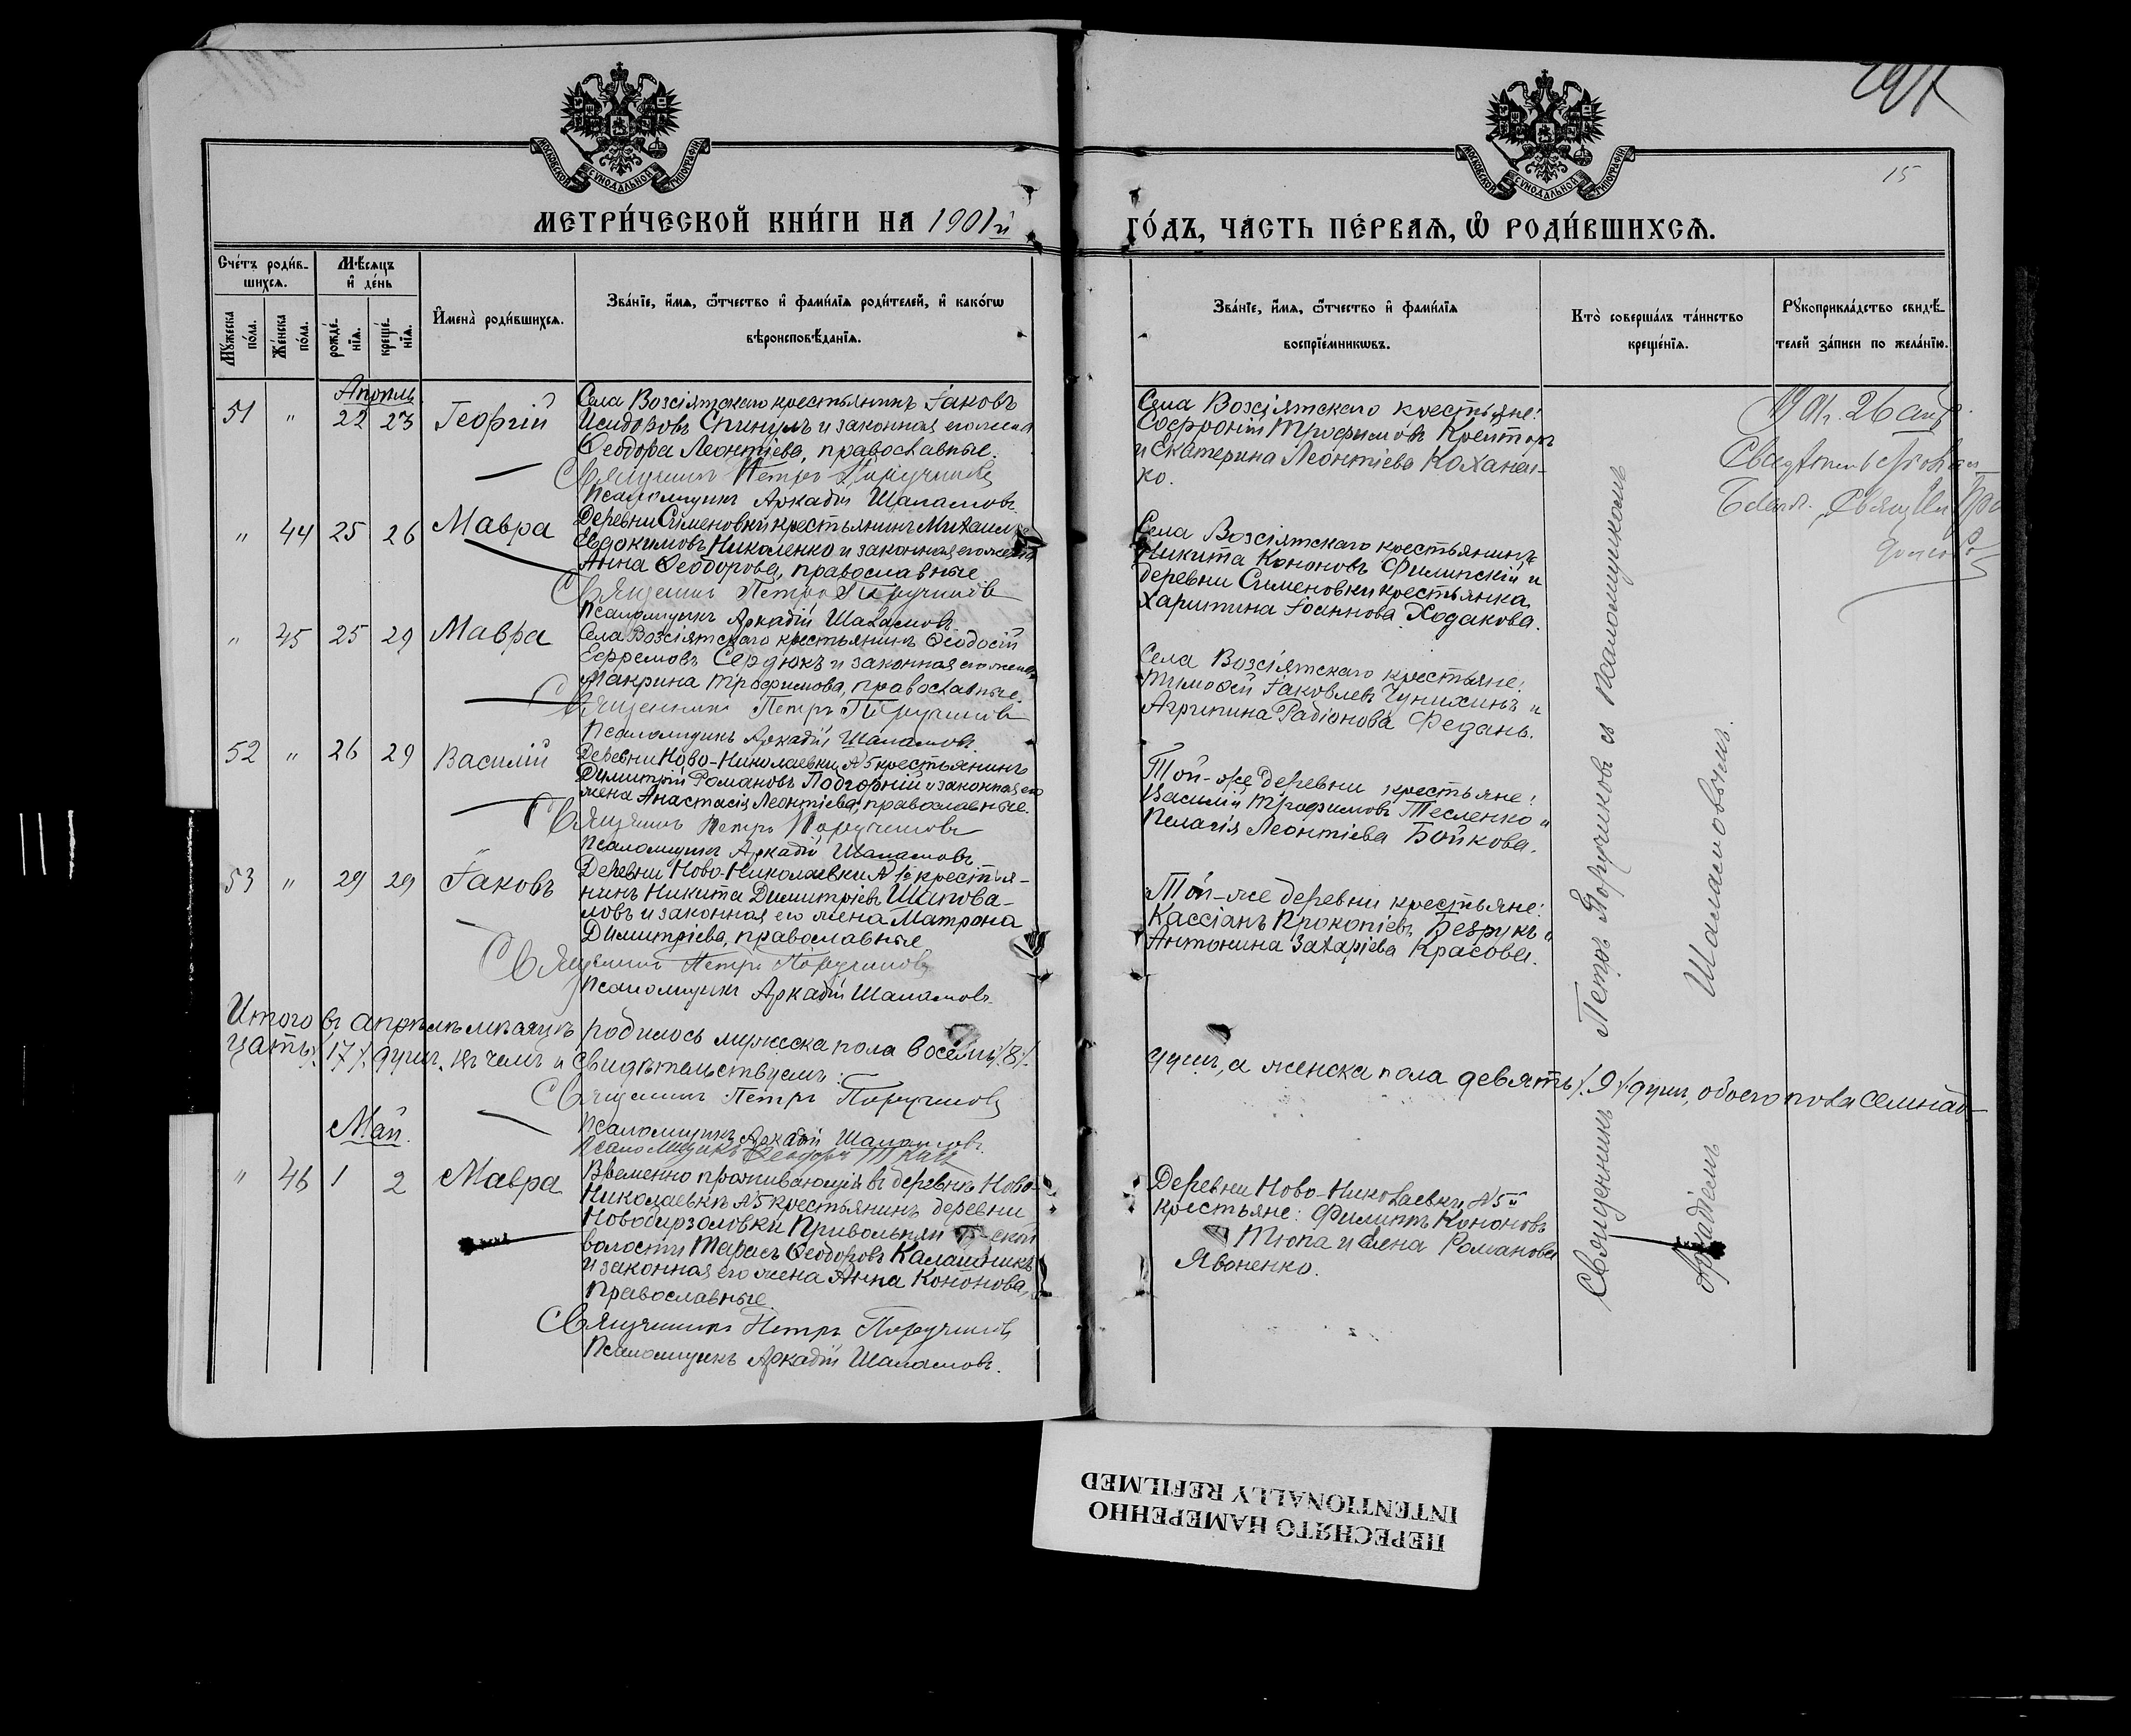 297
15
МОСКОВСКОЙ СѴНОДАЛЬНОЙ ТИПОГРАФІИ
МОСКОВСКОЙ СѴНОДАЛЬНОЙ ТИПОГРАФІИ
МЕТРИ́ЧЕСКОЙ КНИ́ГИ НА 1901й
ГО́ДЪ, ЧА́СТЬ ПЕ́РВАѦ, Ѡ҆ РОДИ́ВШИХСѦ.
Сче́тъ роди́в-
шихсѧ.
Мꙋ́жеска по́ла.
Же́нска по́ла.
Мѣ́сѧцъ
и҆ де́нь
рожде́нїѧ.
креще́нїѧ.
И҆мена̀ роди́вшихсѧ.
Зва́нїе, и҆́мѧ, ѻ҆́тчество и҆ фами́лїѧ роди́телей, и҆ како́гѡ
вѣроисповѣ́данїѧ.
Зва́нїе, и҆́мѧ, ѻ҆́тчество и҆ фами́лїѧ
воспрїе́мникѡвъ.
Кто̀ соверша́лъ та́инство
креще́нїѧ.
Рꙋкоприкла́дство свидѣ́-
телей за́писи по жела́нїю.
Апрѣль
51 " 22 23 Георгій
Села Возсіятскаго крестьянинъ Іаковъ
Исидоровъ Спинулъ и законная его жена
Ѳеодора Леонтіева, православные.
Священникъ Петръ Поручиковъ
Псаломщикъ Аркадій Шаламовъ.
Села Возсіятскаго крестьяне:
Софроній Трофимовъ Крейторъ
и Екатерина Леонтіева Коханен-
ко.
26 апр.
" 44 25 26 Мавра
Деревни Сименовки крестьянинъ Михаилъ
Евдокимовъ Николенко и законная его жена
Анна Ѳеодорова, православные
Священникъ Петръ Поручиковъ
Псаломщикъ Аркадій Шаламовъ.
Села Возсіятскаго крестьянинъ
Никита Кононовъ Филипскій и
деревни Сименовки крестьянка
Харитина Іоаннова Ходакова.
" 45 25 29 Мавра
Села Возсіятскаго крестьянинъ Ѳеодосій
Ефремовъ Сердюкъ и законная его жена
Макрина Трофимова, православные
Священникъ Петръ Поручиковъ
Псаломщикъ Аркадій Шаламовъ.
Села Возсіятскаго крестьяне:
Тимоѳей Іаковлевъ Чунихинъ и
Агрипина Радіонова Федань.
52 " 26 29 Василій
Деревни Ново-Николаевки №5 крестьянинъ
Димитрій Романовъ Подгорній и законная его
жена Анастасія Леонтіева, православные.
Священникъ Петръ Поручиковъ
Псаломщикъ Аркадій Шаламовъ
Той-же деревни крестьяне:
Василій Трофимовъ Тесленко и
Пелагія Леонтіева Бойкова.
53 " 29 29 Іаковъ
Деревни Ново-Николаевки крестья-
нинъ Никита Димитріевъ Шапова-
ловъ и законная его жена Матрона
Димитріева, православные
Священникъ Петръ Поручиковъ
Псаломщикъ Аркадій Шаламовъ.
Той-же деревни крестьяне:
Кассіанъ Прокопіевъ Безрукъ и
Антонина Захаріева Красова.
Итого въ апрѣлѣ мѣсяцѣ родилось мужеска пола восемь /8/.
душъ, а женска пола девять /9/ душъ, обоего пола семнад-
цать /17/ душъ, въ чемъ и свидѣтельствуемъ:
Священникъ Петръ Поручиковъ
Псаломщикъ Аркадій Шаламовъ.
Псаломщикъ Ѳеодоръ Ткач
Май.
" 46 1 2 Мавра
Временно проживающія въ деревнѣ Ново-
Николаевкѣ №5 крестьянинъ деревни
волости Тарасъ Ѳеодоровъ Калашникъ
и законная его жена Анна Кононова,
православные.
Священникъ Петръ Поручиковъ
Псаломщикъ Аркадій Шаламовъ.
Деревни Ново-Николаевки №5й
крестьяне: Филиппъ Кононовъ
Тюпа и Елена Романова
Явоненко.
Священникъ Петръ Поручиковъ съ псаломщикомъ
Аркадіемъ Шаламовымъ.
ПЕРЕСНЯТО НАМЕРЕННО
INTENTIONALLY REFILMED